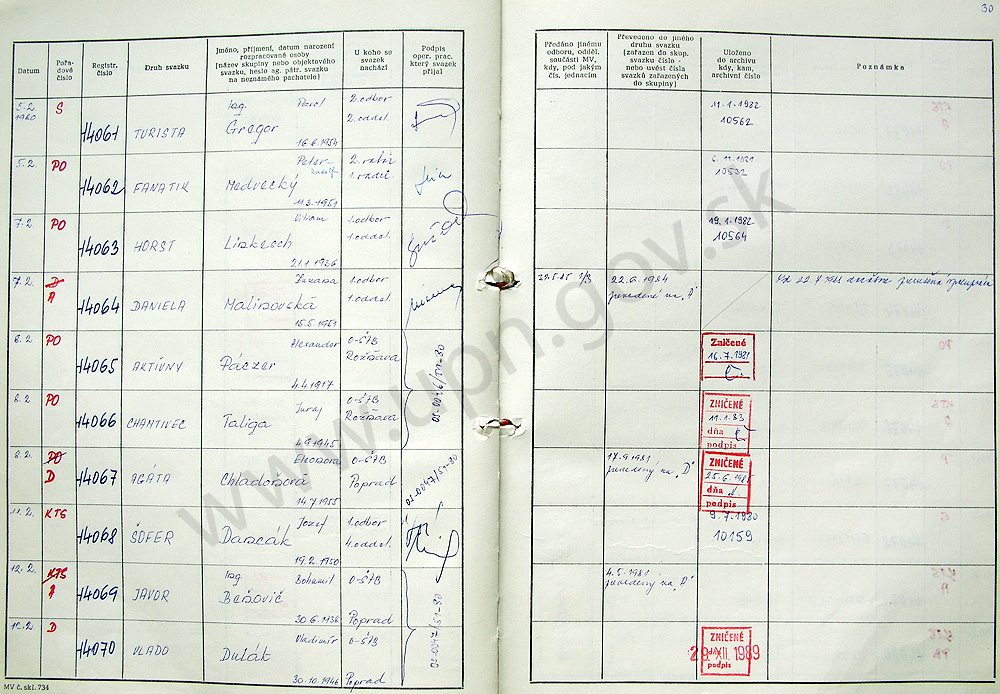 30
Datum
Pořadové číslo
Registr. číslo
Druh svazku
Jméno, příjmení, datum narození
rozpracované osoby
(název skupiny nebo objektového
svazku, heslo ag. pátr. svazku
na neznámého pachatele)
U koho se
svazek
nachází
Podpis
oper. prac.
který svazek
přijal
Předáno jinému
odboru, odděl.
součásti MV,
kdy, pod jakým
čís. jednacím
Převedeno do jiného
druhu svazku
(zařazen do skup.
svazku číslo -
nebo uvést čísla
svazků zařazených
do skupiny)
Uloženo
do archivu
kdy, kam,
archivní číslo
Poznámka
5.2. 1980 S 14061 TURISTA Ing. Pavol Gregor 16.6.1954 2.odbor 2.oddel. 11.1.1982 10562
5.2. PO 14062 FANATIK Peter Rudolf Medvecký 11.3.1951 6.11.1981 10532
7.2. PO 14063 HORST Viliam 21.1.1936 1.odbor 1.oddel. 19.1.1982 10564
7.2. D A 14064 DANIELA Zuzana Malinovská 15.5.1951 1.odbor 1.oddel. 22.6.1984 prevedené na "A"
8.2. PO 14065 AKTÍVNY Alexander Páczer 4.4.1917 O-ŠTB Rožňava Zničené 16.7.1981
8.2. PO 14066 CHANTIVEC Juraj Taliga 4.9.1945 O-ŠTB Rožňava ZNIČENÉ 11.1.83 dňa podpis
8.2. PO D 14067 AGÁTA Eleonora Chladoňová 14.7.1955 O-ŠTB Poprad 17.9.1981 prevedený na "D" ZNIČENÉ dňa podpis
11.2. KTS 14068 ŠOFER Jozef Dančák 19.2.1950 1.odbor 4.oddel. 9.7.1980 10159
12.2. KTS A 14069 JAVOR Ing. Bohumil Bešovič 30.6.1938 O-ŠTB Poprad 4.5.1981 prevedený na "D"
12.2. D 14070 VLADO Vladimír Dulák 30.10.1946 O-ŠTB Poprad ZNIČENÉ 29.XII.1989 podpis
MV č. skl. 734
www.upn.gov.sk